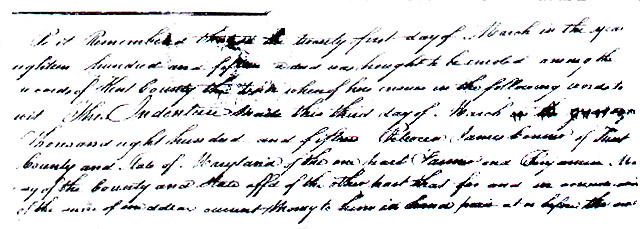 Be it Remembered that on the twenty first day of March in the year
eighteen hundred and fifteen a deed was brought to be enroled among the
records of Kent County the tenor whereof here ensues in the following words to
wit This Indenture made this third day of March in the
thousand eight hundred and fifteen Between James of Kent
County and State of Maryland of the one part Farmer and Benjamin
of the County and State aff'd of the other part that for and in
of the sum of current Money to him in hand paid at or before the